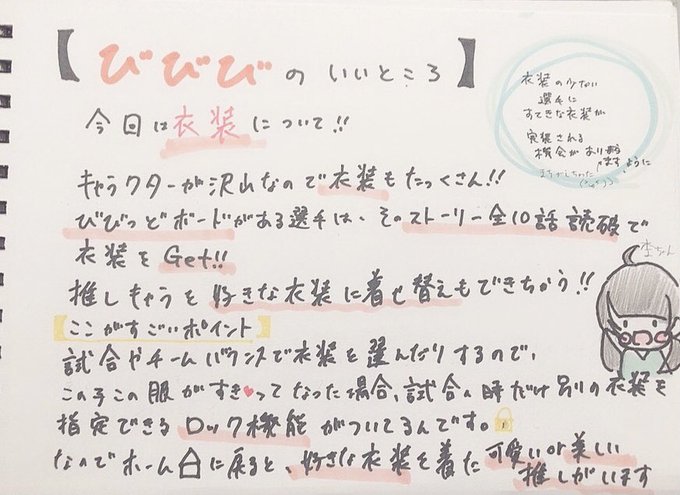 【びびびのいいところ】
今回は衣装について!!
衣装の少ない
選手に
すてきな衣装が
実装される
機会があり
ますように
キャラクターが沢山なので衣装もたっくさん!!
びびっどボードがある選手は、そのストーリー全10話読破で
衣装をGet!!
推しキャラを好きな衣装に着せ替えもできちゃう!!
【ここがすごいポイント】
試合やチームバランスで衣装を選んだりするので、
この子この服がすき♥ってなった場合、試合の時だけ別の衣装を
指定できるロック機能がついてるんです。
なのでホームに戻ると、好きな衣装を着た可愛いor美しい
推しがいます